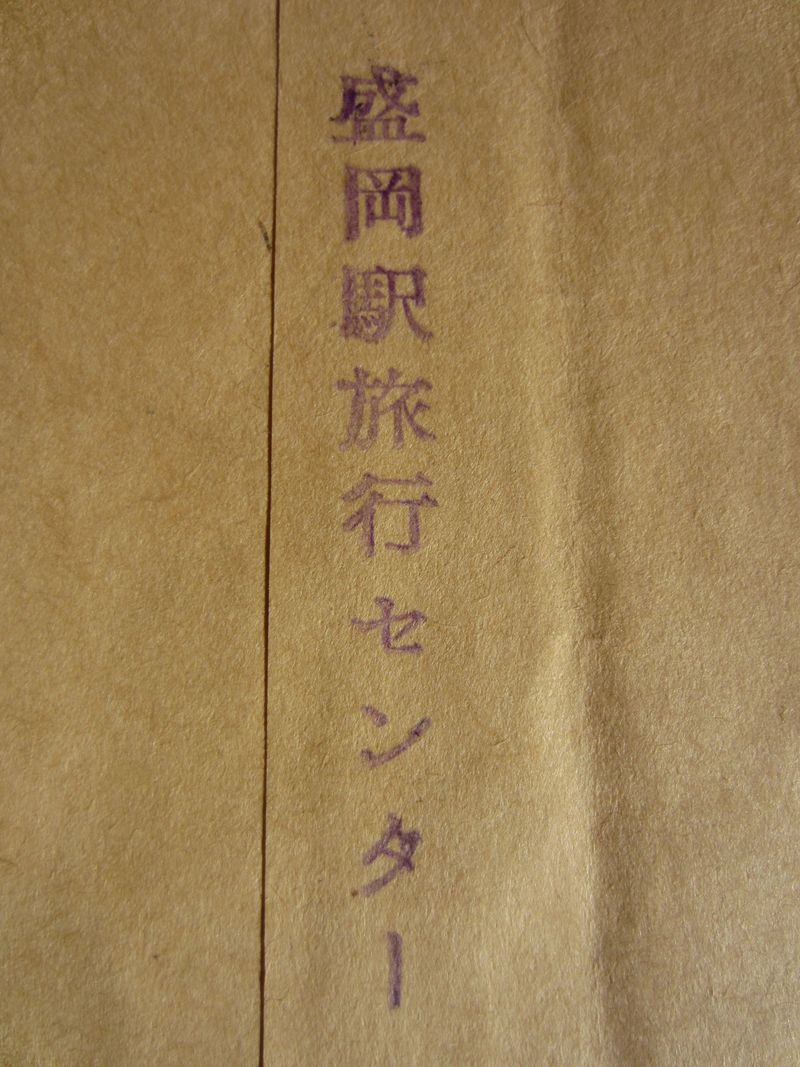 盛岡駅旅行センター